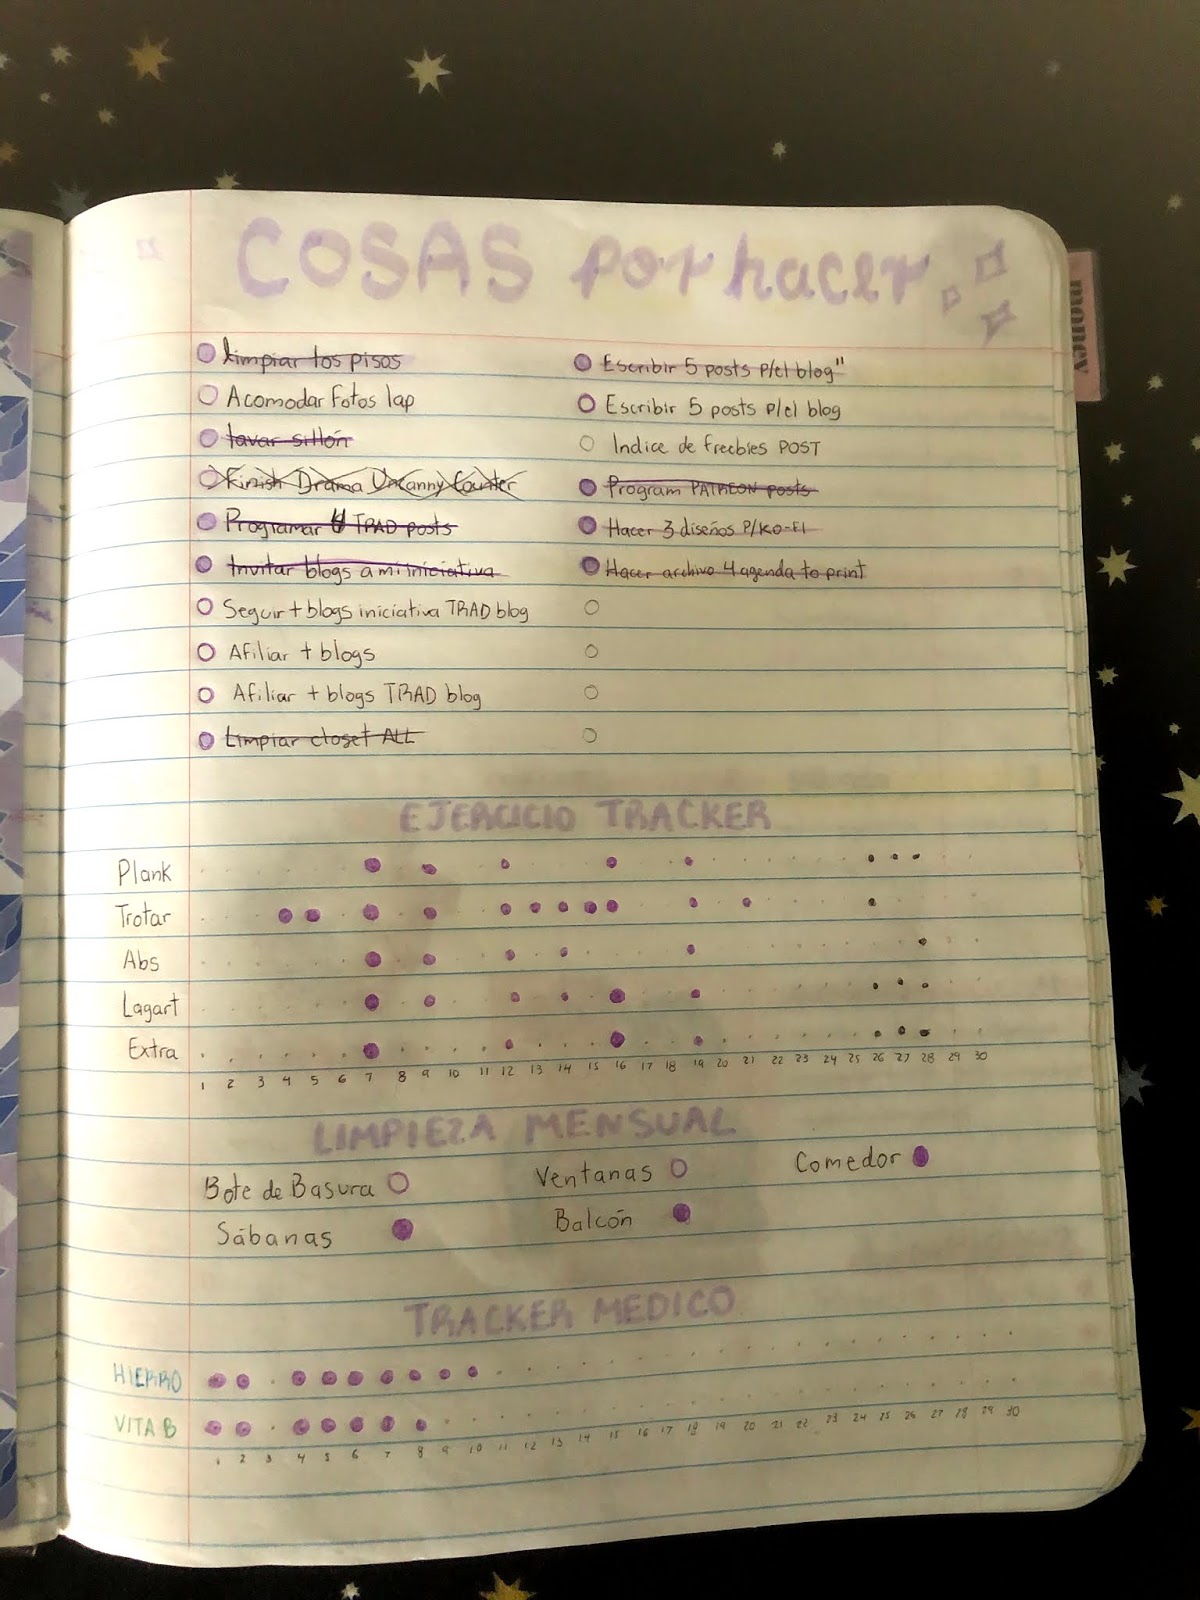 COSAS por hacer
money
Limpiar los pisos
Acomodar Fotos lap
lavar sillón
Finish Drama Uncanny Counter
Programar 4 TRAD posts
Invitar blogs a mi iniciativa
Seguir + blogs iniciativa TRAD blog
Afiliar + blogs
Afiliar + blogs TRAD blog
Limpiar closet ALL
Escribir 5 posts p/el blog"
Escribir 5 posts p/el blog
Indice de freebies POST
Program PATREON posts
Hacer 3 diseños P/KO-FI
Hacer archivo 4 agenda to print
EJERCICIO TRACKER
Plank
Trotar
Abs
Lagart
Extra
1 2 3 4 5 6 7 8 9 10 11 12 13 14 15 16 17 18 19 20 21 22 23 24 25 26 27 28 29 30
LIMPIEZA MENSUAL
Bote de Basura Ventanas Comedor
Sábanas Balcón
TRACKER MEDICO
HIERRO
VITA B
1 2 3 4 5 6 7 8 9 10 11 12 13 14 15 16 17 18 19 20 21 22 23 24 25 26 27 28 29 30